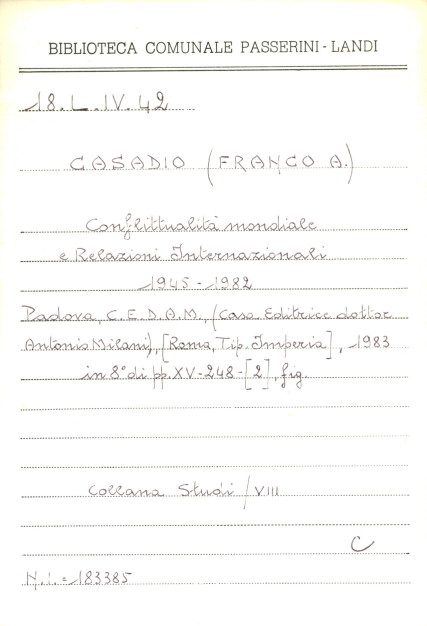 BIBLIOTECA COMUNALE PASSERINI - LANDI
18.L.IV.42
CASADIO (FRANCO A.)
Conflittualità mondiale
e Relazioni Internazionali
1945-1982
Padova, C.E.D.A.M., (Casa Editrice dottor
Antonio Milani), [Roma, Tip. Imperia], 1983
in 8° di pp. XV-248-[2], fig.
Collana Studi / VIII
C
N.i. = 183385